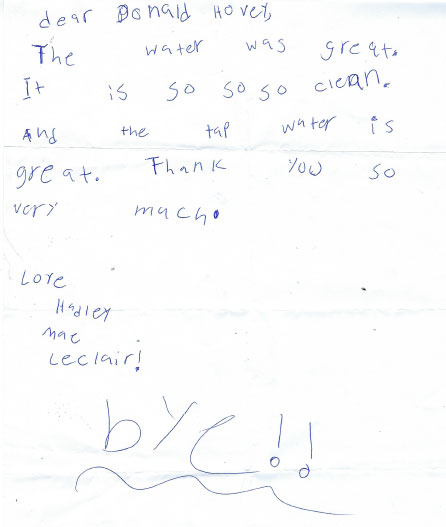 dear Donald Hovey,
The water was great.
It is so so so clean.
And the tap water is
great. Thank you so
very much.
Love
Hadley
Mae
Leclair!
bye!!